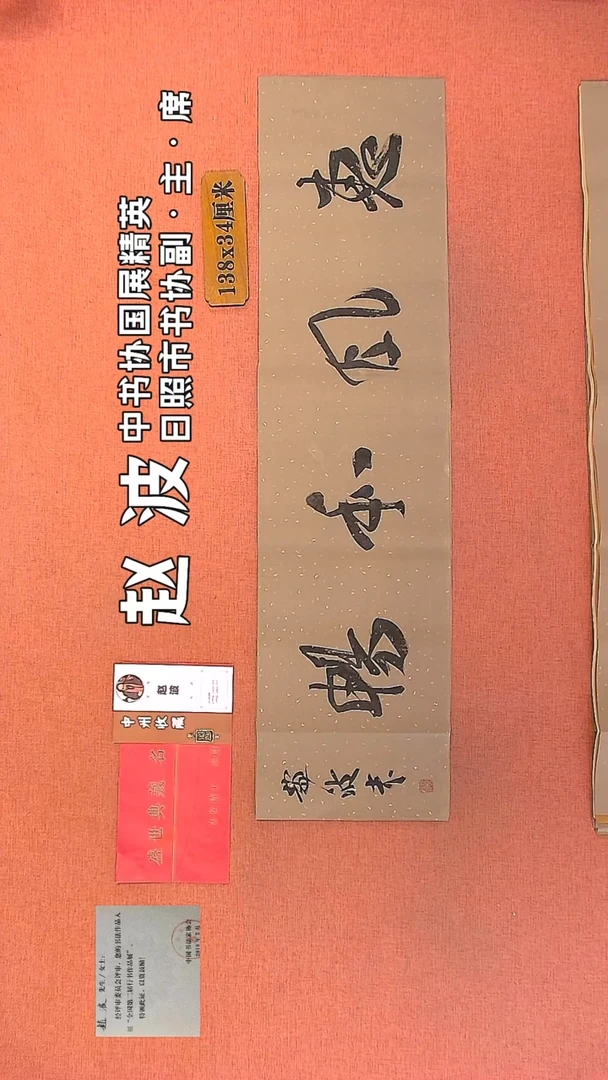 中书协国展精英
赵波
日照市书协副·主·席
138x34厘米
惠风和畅
赵波书
赵波
中州收藏
盛世典藏 名
赵波 先生/女士：
经评审委员会评审，您的书法作品入
展“全国第二届行书作品展”。
特颁此证，以资鼓励！
中国书法家协会